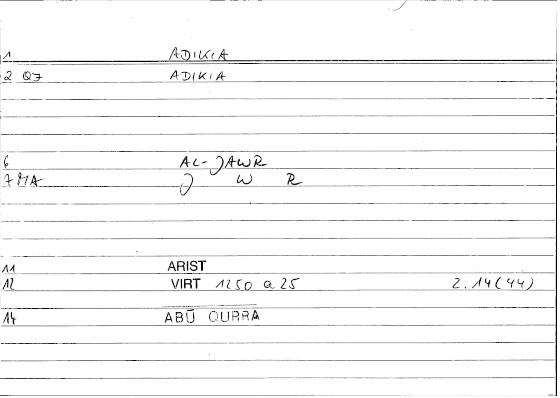 1 ADIKIA
2 Q7 ADIKIA
6 AL-JAWR
7 MA J W R
11 ARIST
12 VIRT 1250 a 25 2.14(44)
14 ABŪ QURRA